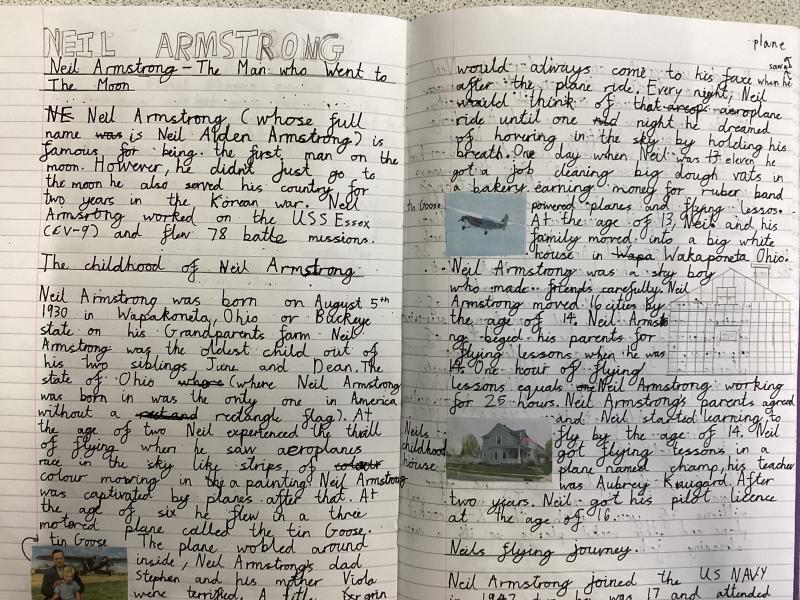 NEIL ARMSTRONG
Neil Armstrong – The Man who Went to
The Moon
NE Neil Armstrong (whose full
name was is Neil Alden Armstrong) is
famous for being the first man on the
moon. However, he didn't just go to
the moon he also served his country for
two years in the Korean war. Neil
Armsrtong worked on the USS Essex
(CV-9) and flew 78 battle missions.
The childhood of Neil Armstrong
Neil Armstrong was born on August 5th
1930 in Wapakoneta, Ohio or Buckeye
state on his Grandparents farm Neil
Armstrong was the oldest child out of
his two siblings June and Dean. The
state of Ohio where (where Neil Armstrong
was born in was the only one in America
without a rectangle flag). At
the age of two Neil experienced the thrill
of flying when he saw aeroplanes
race in the sky like strips of colour
colour moving in the a painting. Neil Armstrong
was captivated by planes after that. At
the age of six he flew in a three
motered plane called the tin Goose.
tin Goose The plane wobled around
inside, Neil Armstrong's dad
Stephen and his mother Viola
were terrified. A little grin
plane
saw
would always come to his face when he
after the plane ride. Every night, Neil
would think of that aeroplane
ride until one night he dreamed
of hovering in the sky by holding his
breath. One day when Neil was 13 eleven he
got a job cleaning big dough vats in
a bakery earning money for ruber band
tin Goose powered planes and flying lessons.
At the age of 13, Neil and his
family moved into a big white
house in Wapa Wakaponeta Ohio.
Neil Armstrong was a shy boy
who made friends carefully. Neil
Armstrong moved 16 cities by
the age of 14. Neil Armstro
ng beged his parents for
flying lessons when he was
14. One hour of flying
lessons equals Neil Armstrong working
for 25 hours. Neil Armstrong's parents agreed
and Neil started learning to
Neils childhood house fly by the age of 14. Neil
got flying lessons in a
plane named champ, his teacher
was Aubrey Knugard. After
two years. Neil got his pilot licence
at the age of 16.
Neils flying journey.
Neil Armstrong joined the US NAVY
in 1947 he was 17 and attended